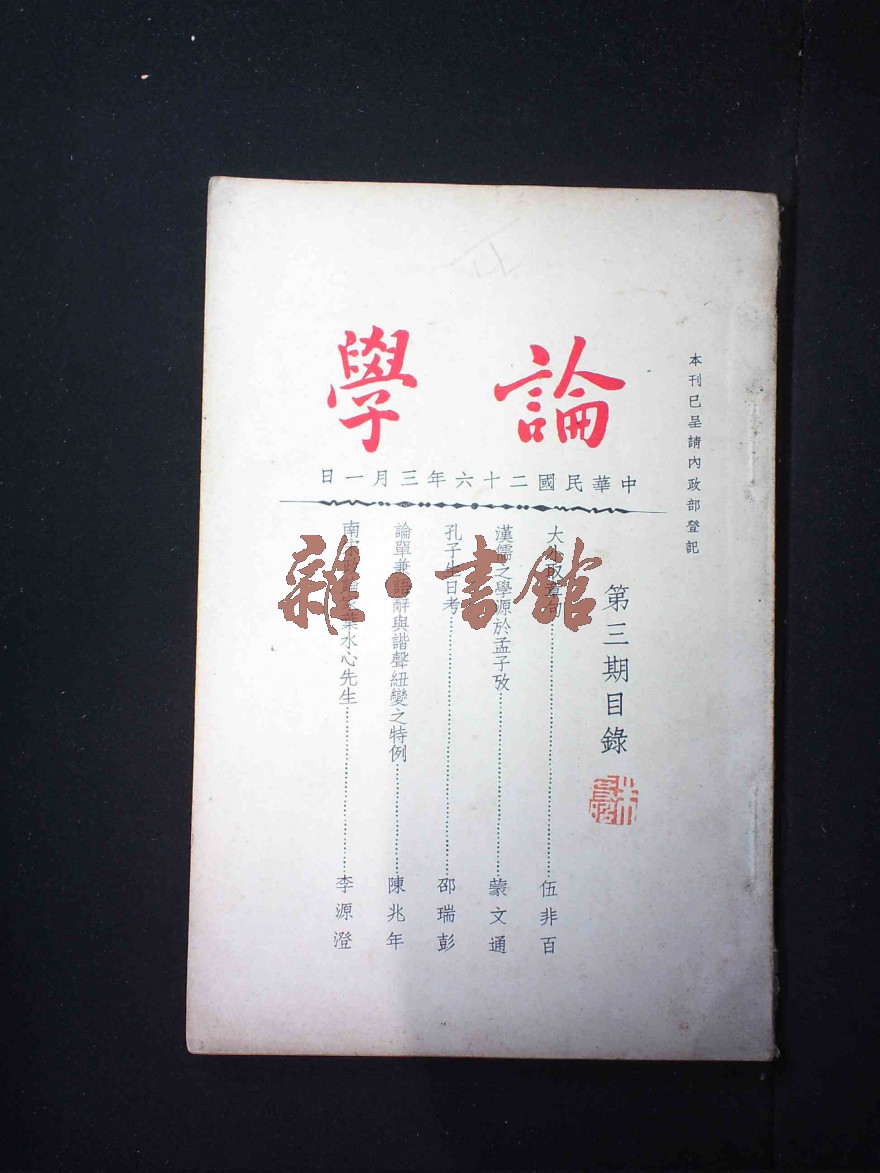 論學
中華民國二十六年三月一日
本刊已呈請內政部登記
第三期目錄
大小取章句 伍非百
漢儒之學源於孟子攷 蒙文通
孔子生日考 邵瑞彭
論單兼語辭與諧聲紐變之特例 陳兆年
南宋政論家葉水心先生 李源澄
雜·書館